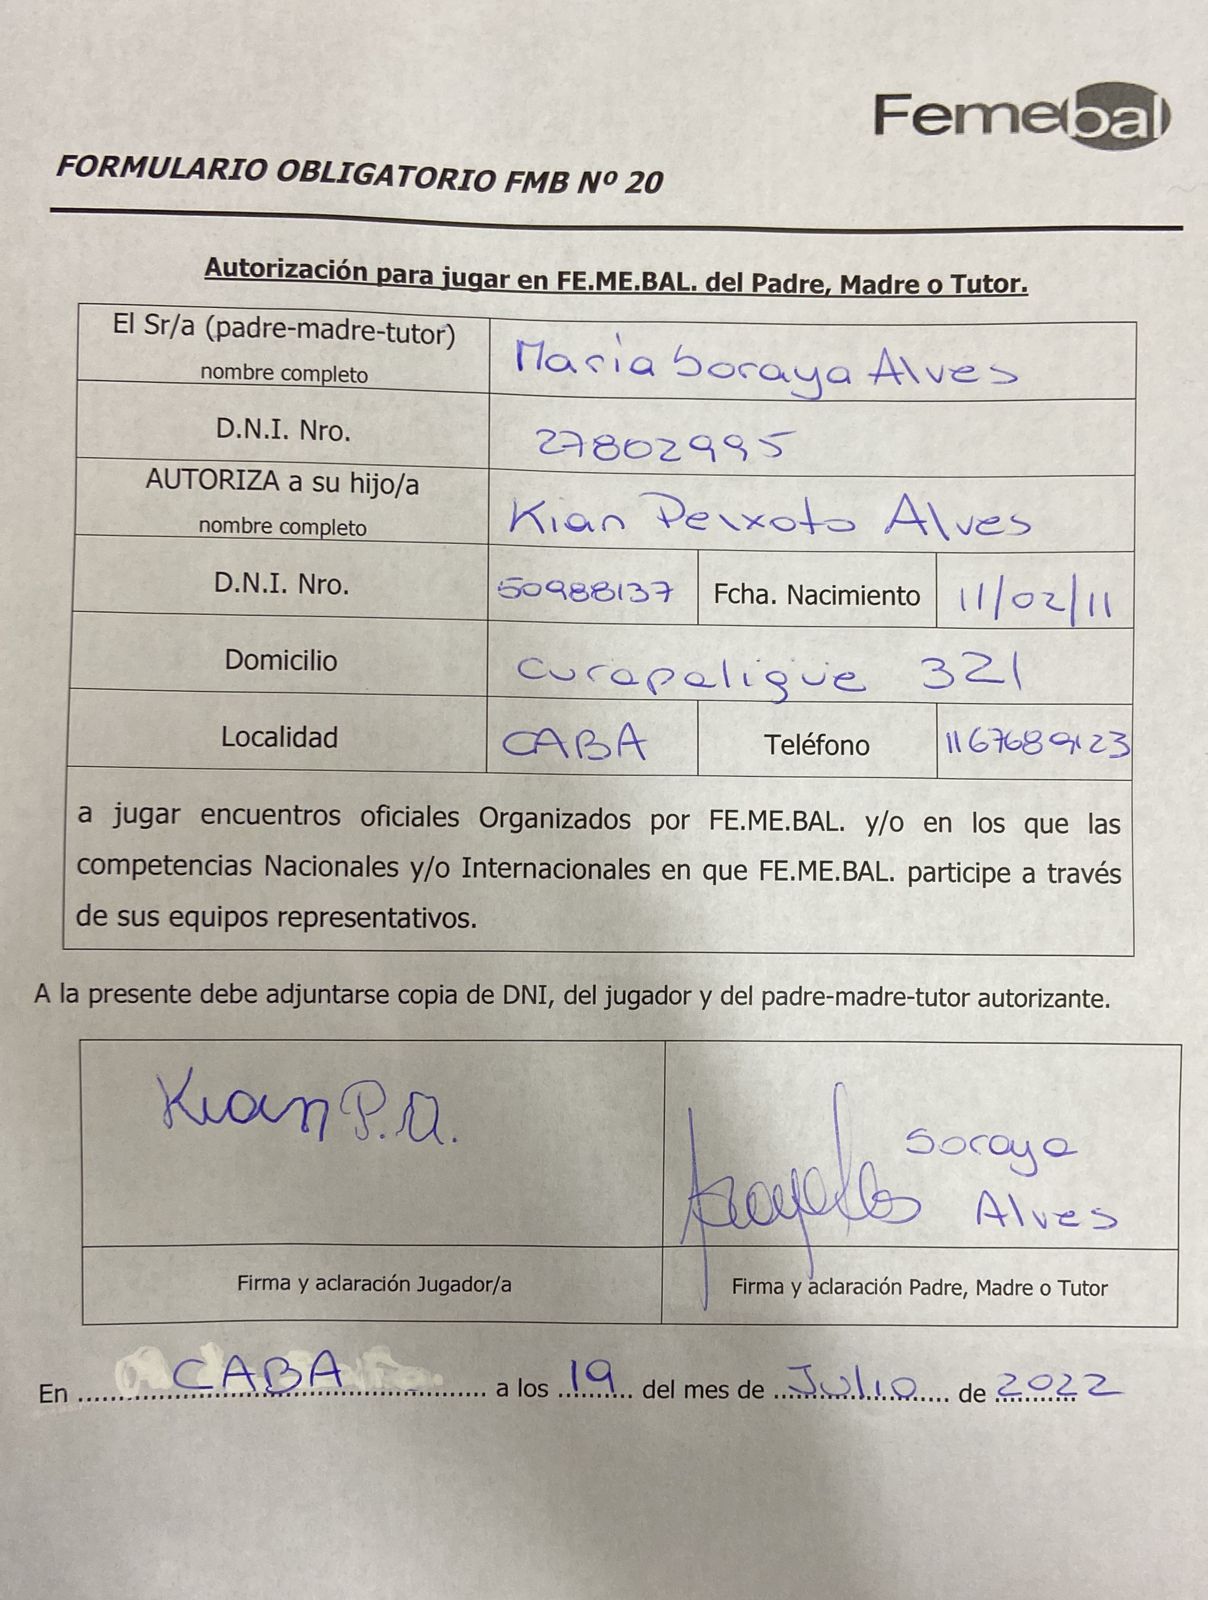 Femebal
FORMULARIO OBLIGATORIO FMB Nº 20
Autorización para jugar en FE.ME.BAL. del Padre, Madre o Tutor.
El Sr/a (padre-madre-tutor) Maria Soraya Alves
nombre completo
D.N.I. Nro. 27802995
AUTORIZA a su hijo/a Kian Peixoto Alves
nombre completo
D.N.I. Nro. 50988137 Fcha. Nacimiento 11/02/11
Domicilio curapaligüe 321
Localidad CABA Teléfono 1167689123
a jugar encuentros oficiales Organizados por FE.ME.BAL. y/o en los que las
competencias Nacionales y/o Internacionales en que FE.ME.BAL. participe a través
de sus equipos representativos.
A la presente debe adjuntarse copia de DNI, del jugador y del padre-madre-tutor autorizante.
Kian P.A.
Soraya
Alves
Firma y aclaración Jugador/a Firma y aclaración Padre, Madre o Tutor
En CABA a los 19 del mes de Julio de 2022